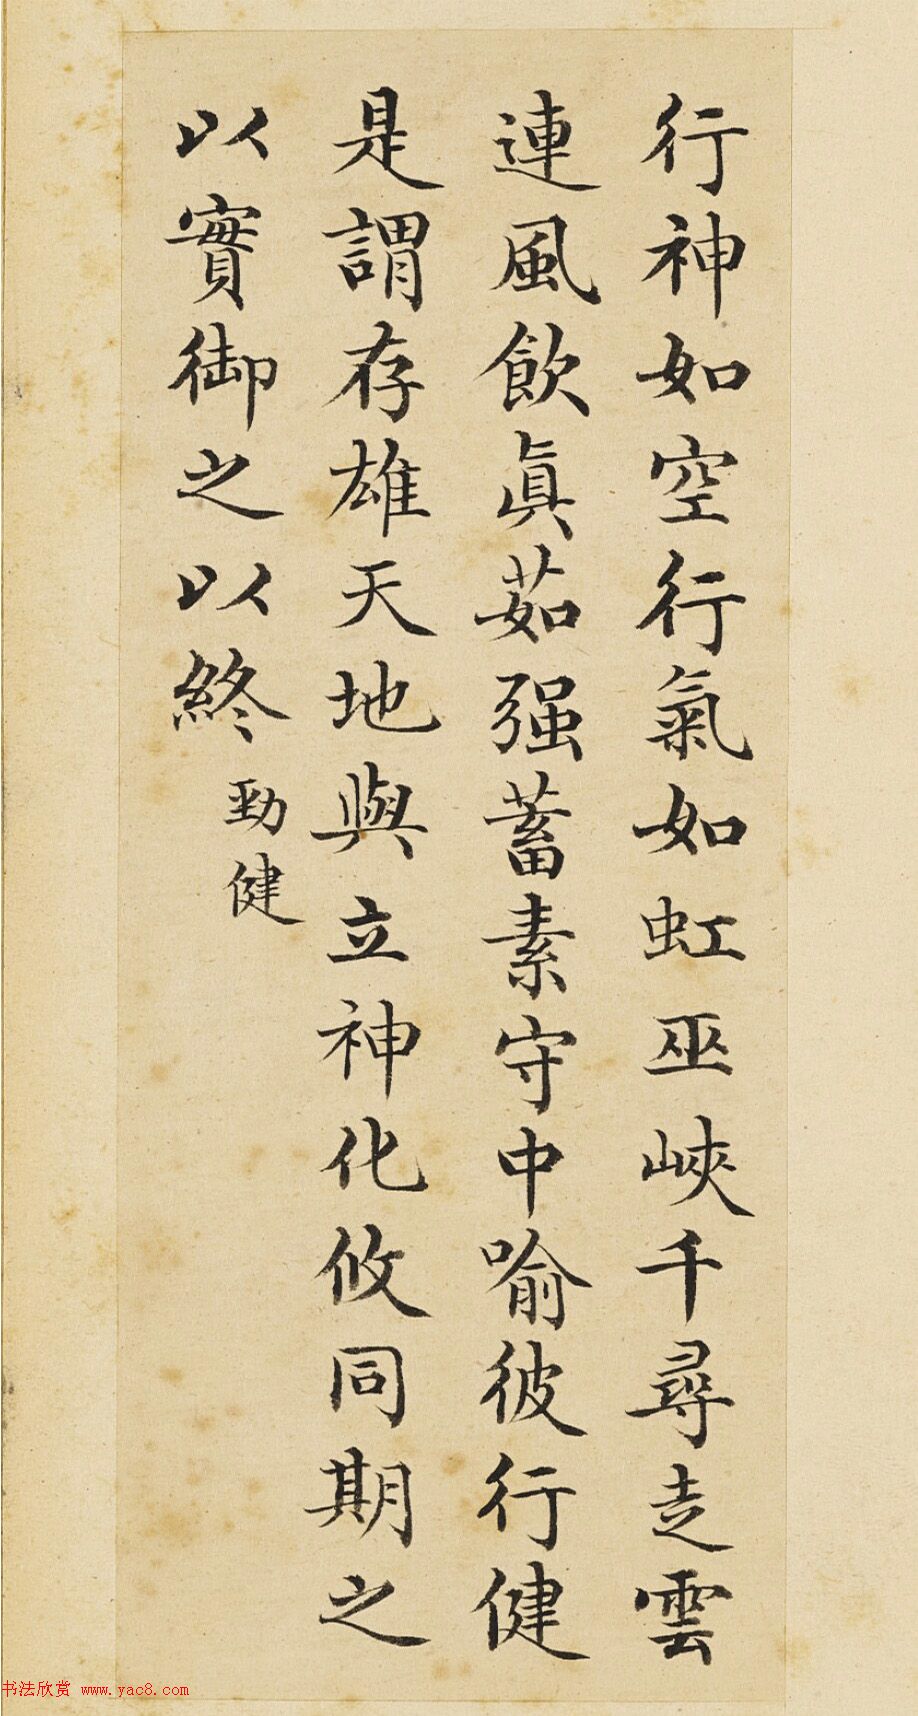 行神如空行氣如虹巫峽千尋走雲
連風飲眞茹强蓄素守中喻彼行健
是謂存雄天地與立神化攸同期之
以實御之以終 勁健
书法欣赏 www.yac8.com